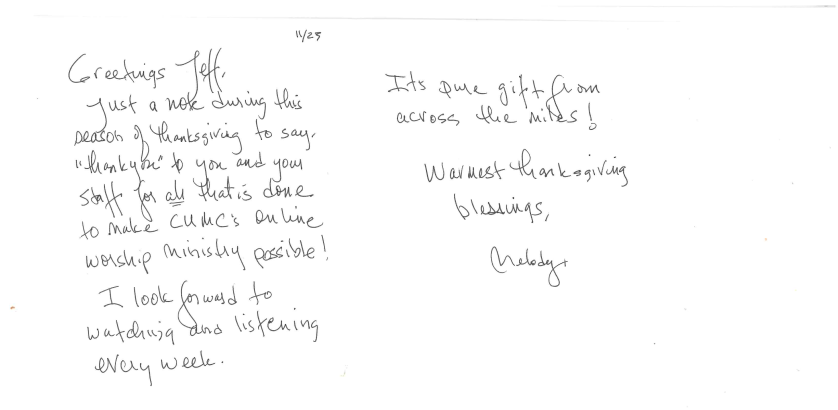 11/25
Greetings Jeff,
Just a note during this
season of thanksgiving to say,
"thank you" to you and your
staff for all that is done
to make CUMC's online
worship ministry possible!
I look forward to
watching and listening
every week.
Its pure gift from
across the miles!
Warmest thanksgiving
blessings,
Melody+